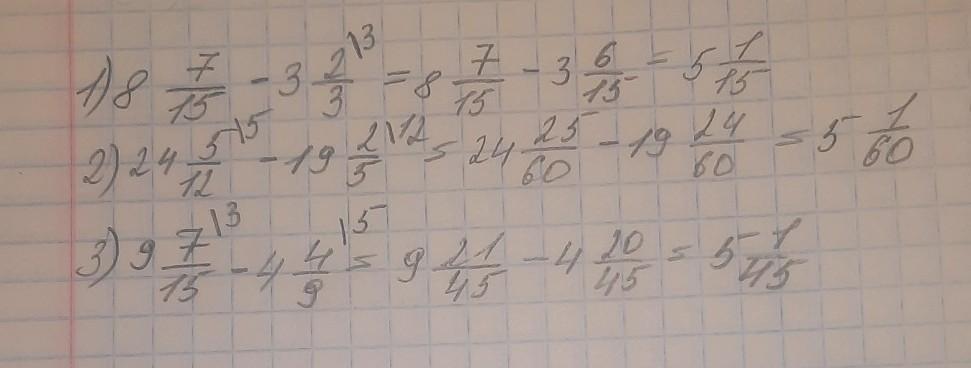 1) 8 7/15 - 3 2/3 \3 = 8 7/15 - 3 6/15 = 5 1/15
2) 24 5/12 \5 - 19 2/5 \12 = 24 25/60 - 19 24/60 = 5 1/60
3) 9 7/15 \3 - 4 4/9 \5 = 9 21/45 - 4 20/45 = 5 1/45